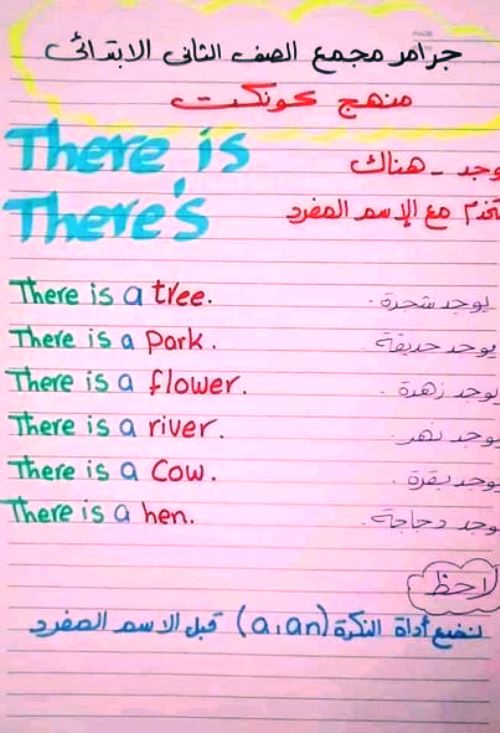 جرامر مجمع الصف الثانى الابتدائى
منهج كونكت
There is
وجد - هناك
There's
تخدم مع الإسم المفرد
There is a tree.
يوجد شجرة.
There is a park.
يوجد حديقة.
There is a flower.
يوجد زهرة.
There is a river.
يوجد نهر.
There is a Cow.
يوجد بقرة.
There is a hen.
يوجد دجاجة.
لاحظ
نضع أداة النكرة (a, an) قبل الاسم المفرد